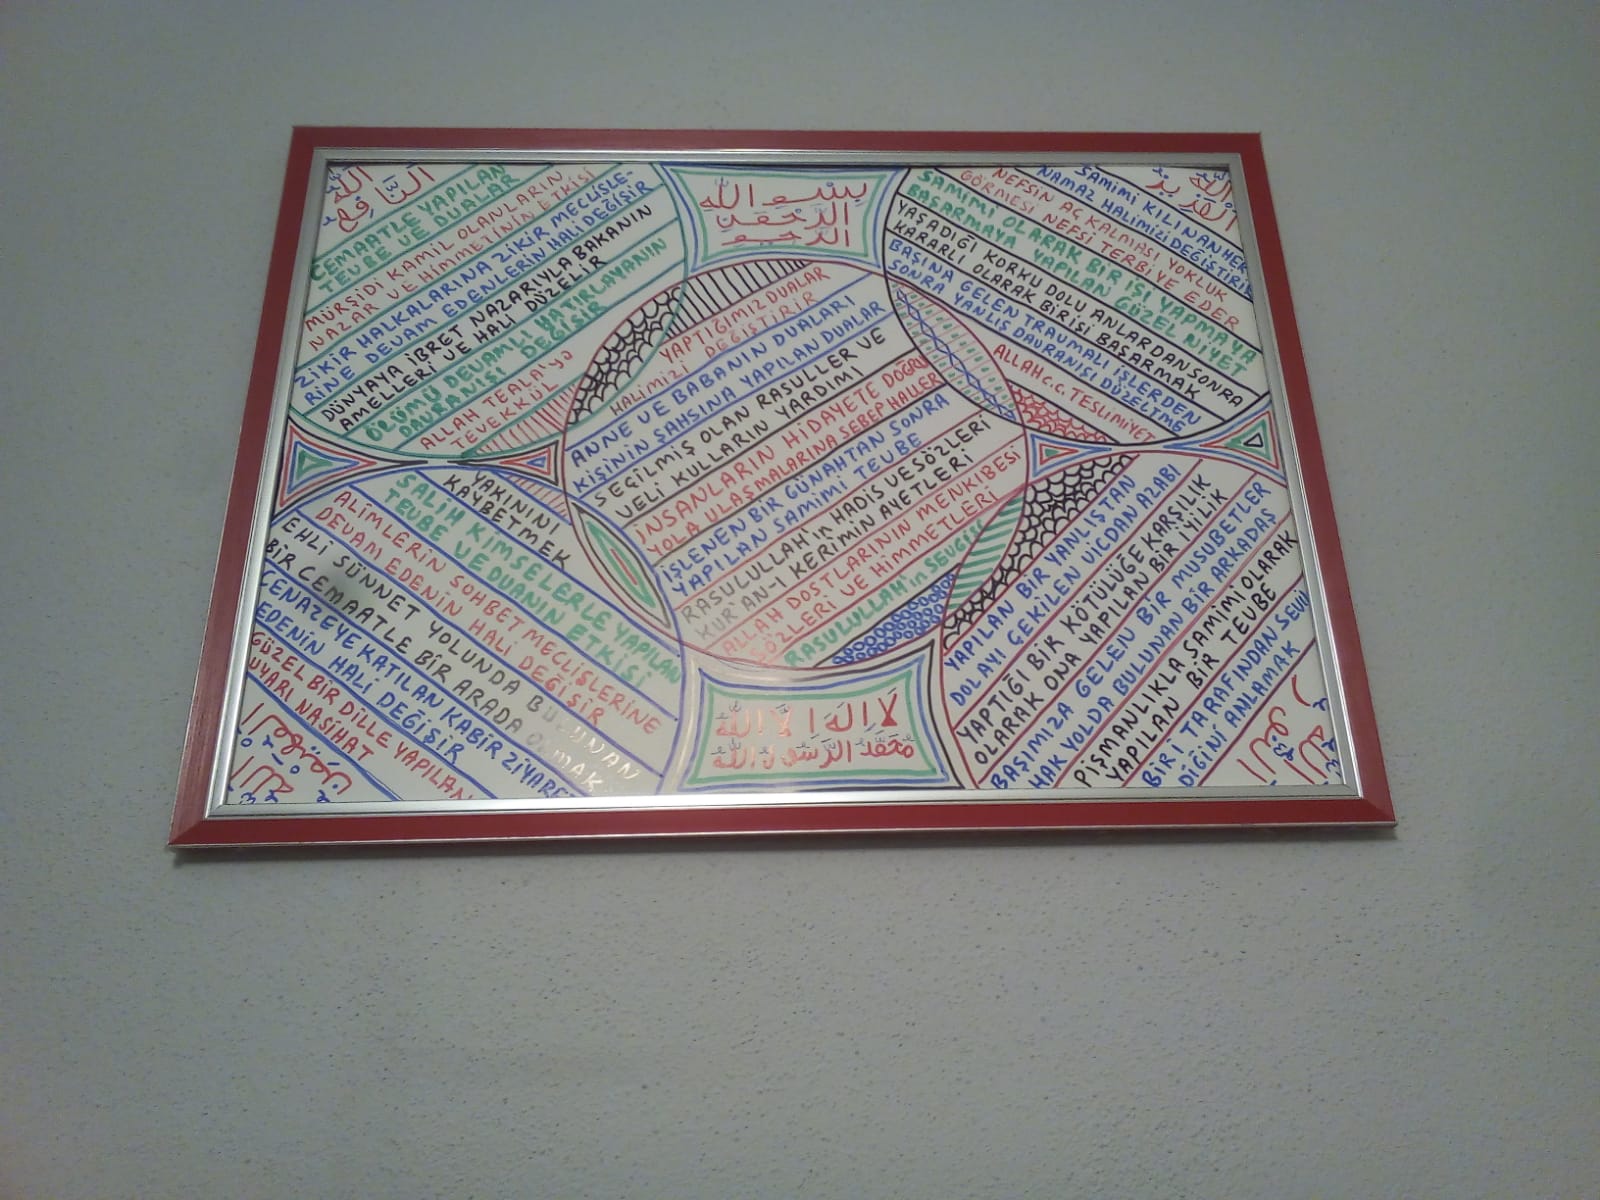 الله
النافع
CEMAATLE YAPILAN
TEVBE VE DUALAR
MÜRŞİDİ KAMİL OLANLARIN
NAZAR VE HİMMETİNİN ETKİSİ
ZİKİR HALKALARINA ZİKİR MECLİSLE-
RİNE DEVAM EDENLERİN HALİ DEĞİŞİR
DÜNYAYA İBRET NAZARIYLA BAKANIN
AMELLERİ VE HALİ DÜZELİR
ÖLÜMÜ DEVAMLI HATIRLAYANIN
DAVRANIŞI DEĞİŞİR
ALLAH TEALA'YA
TEVEKKÜL
بسم الله
الرحمن
الرحيم
الله
SAMİMİ KILINAN HER
NAMAZ HALİMİZİ DEĞİŞTİRİR
NEFSİN AÇ KALMASI YOKLUK
GÖRMESİ NEFSİ TERBİYE EDER
SAMİMİ OLARAK BİR İŞİ YAPMAYA
BAŞARMAYA YAPILAN GÜZEL NİYET
YAŞADIĞI KORKU DOLU ANLARDAN SONRA
KARARLI OLARAK BİRİSİ BAŞARMAK
BAŞINA GELEN TRAVMALI İŞLERDEN
SONRA YANLIŞ DAVRANIŞI DÜZELTME
ALLAH c.c. TESLİMİYET
YAPTIĞIMIZ DUALAR
HALİMİZİ DEĞİŞTİRİR
ANNE VE BABANIN DUALARI
KİŞİNİN ŞAHSINA YAPILAN DUALAR
SEÇİLMİŞ OLAN RASULLER VE
VELİ KULLARIN YARDIMI
İNSANLARIN HİDAYETE DOĞRU
YOLA ULAŞMALARINA SEBEP HALLER
İŞLENEN BİR GÜNAHTAN SONRA
YAPILAN SAMİMİ TEVBE
RASULULLAH'ın HADİS VE SÖZLERİ
KUR'AN-I KERİMİN AYETLERİ
ALLAH DOSTLARININ MENKIBESİ
SÖZLERİ VE HİMMETLERİ
RASULULLAH'ın SEVGİSİ
YAKININI
KAYBETMEK
SALİH KİMSELERLE YAPILAN
TEVBE VE DUANIN ETKİSİ
ALİMLERİN SOHBET MECLİSLERİNE
DEVAM EDENİN HALİ DEĞİŞİR
EHLİ SÜNNET YOLUNDA BULUNAN
BİR CEMAATLE BİR ARADA OLMAK
CENAZEYE KATILAN KABİR ZİYARE
EDENİN HALİ DEĞİŞİR
GÜZEL BİR DİLLE YAPILAN
UYARI NASİHAT
الله
لا اله الا الله
محمد الرسول الله
YAPILAN BİR YANLIŞTAN
DOLAYI ÇEKİLEN VİCDAN AZABI
YAPTIĞI BİR KÖTÜLÜĞE KARŞILIK
OLARAK ONA YAPILAN BİR İYİLİK
BAŞIMIZA GELEN BİR MUSUBETLER
HAK YOLDA BULUNAN BİR ARKADAŞ
PİŞMANLIKLA SAMİMİ OLARAK
YAPILAN BİR TEVBE
BİRİ TARAFINDAN SEVİL
DİĞİNİ ANLAMAK
الله